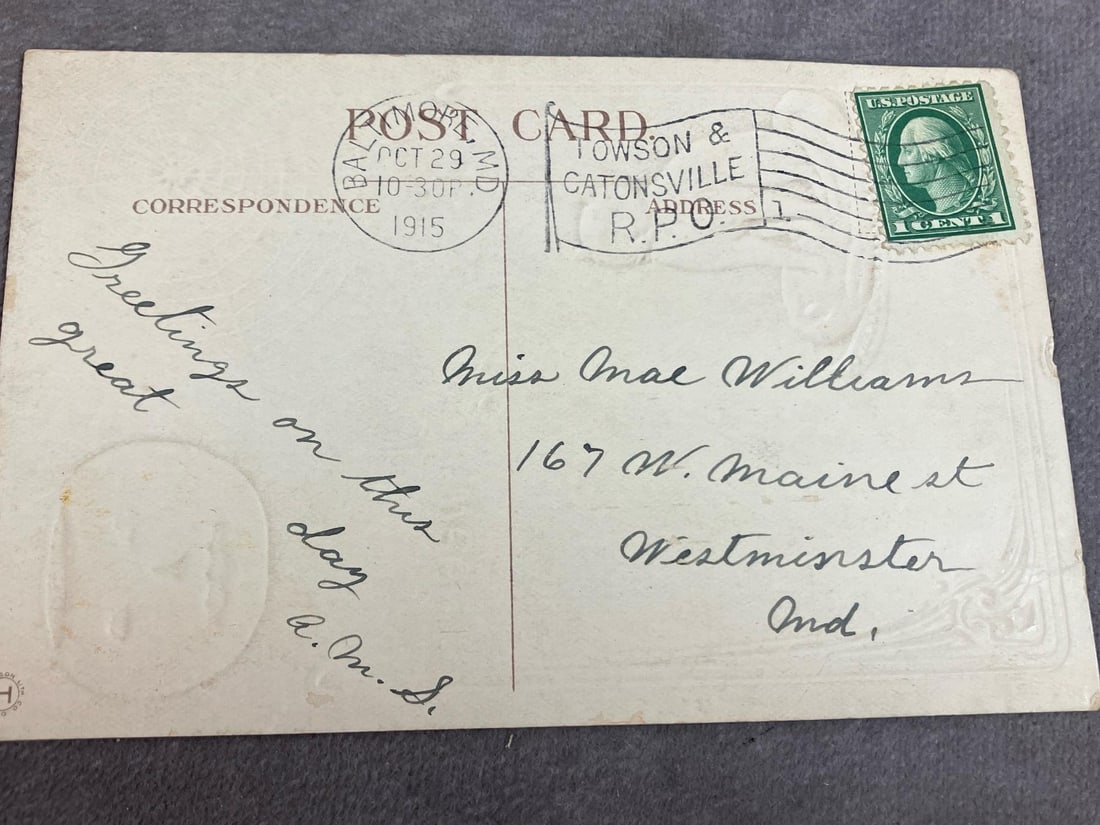 POST CARD.
BALTIMORE, MD
OCT 29
10-30P.
1915
TOWSON &
CATONSVILLE
R.P.O.
1
U.S. POSTAGE
1 CENT 1
CORRESPONDENCE
ADDRESS
Greetings on this
great day
a. m. S.
Miss Mae Williams
167 W. Maine st
Westminster
Md.
H